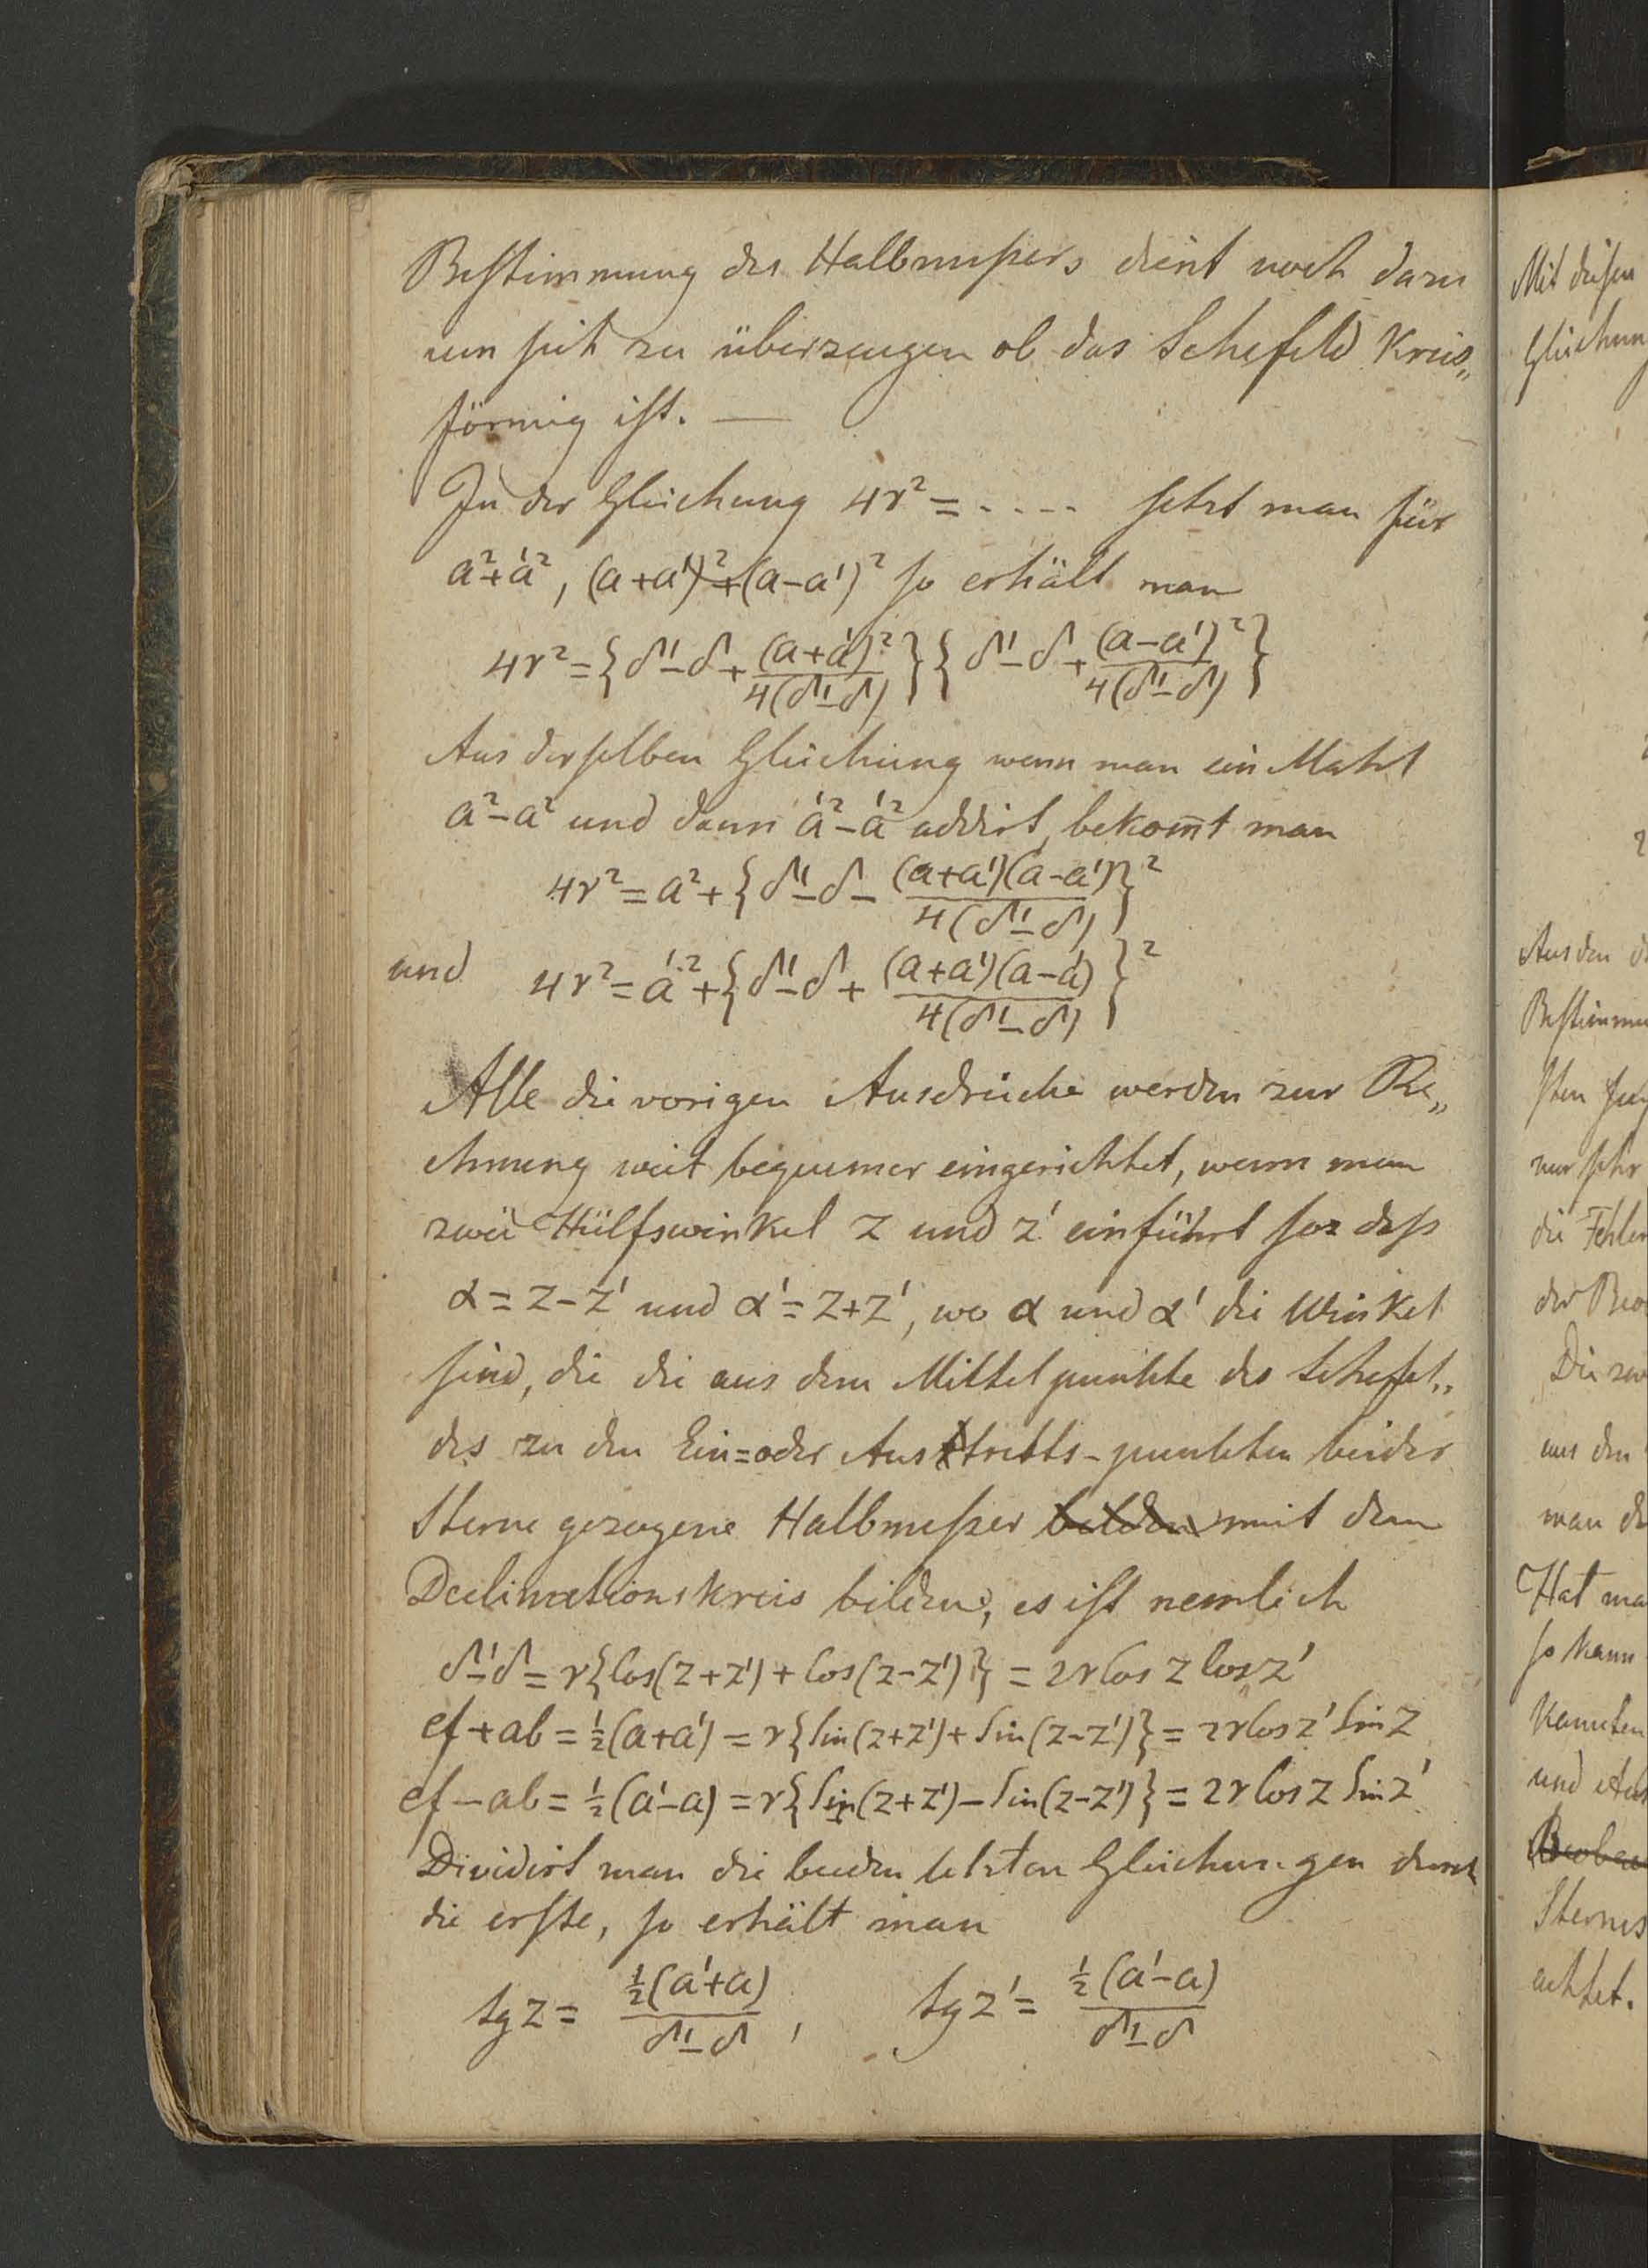 Bestimmung des Halbmeßers dient noch dazu
um sich zu überzeugen ob das Sehefeld Kreis„
förmig ist. —
In der Gleichung 4r² = - - - - setzt man für
a²+a'², (a+a')²+(a-a')² so erhält man
4r² = {δ'-δ+(a+a')²/4(δ'-δ)}{δ'-δ+(a-a')²/4(δ'-δ)}
Aus derselben Gleichung wenn man ein Mahl
a²-a² und dann a'²-a'² addirt, bekom̅t man
4r² = a²+{δ'-δ-(a+a')(a-a')/4(δ'-δ)}²
und 4r² = a'²+{δ'-δ+(a+a')(a-a')/4(δ'-δ)}²
Alle die vorigen Ausdrücke werden zur Re„
chnung weit bequemer eingerichtet, wenn man
zwei Hülfswinkel z und z' einführt so daß
α = z-z' und α' = z+z', wo α und α' die Winkel
sind, die die aus dem Mittelpunkte des Sehefel„
des zu den Ein=oder Austritts-punkten beider
Sterne gezogene Halbmeßer bilden mit dem
Declinationskreis bilden, es ist nemlich
δ'-δ = r{Cos(z+z')+Cos(z-z')} = 2r Cos z Cos z'
ef+ab = ½(a+a') = r{Sin(z+z')+Sin(z-z')} = 2r Cos z' Sin z
ef-ab = ½(a'-a) = r{Sin(z+z')-Sin(z-z')} = 2r Cos z Sin z'
Dividirt man die beiden letzten Gleichungen durch
die erste, so erhält man
tg z = ½(a'+a)/δ'-δ, tg z' = ½(a'-a)/δ'-δ
Mit diesen
Gleichun
Aus den
Bestimmu
nur sehr
die Fehler
der Beo
Die zw
aus den
man
Hat ma
so kann
kannten
und
Sternes
achtet.